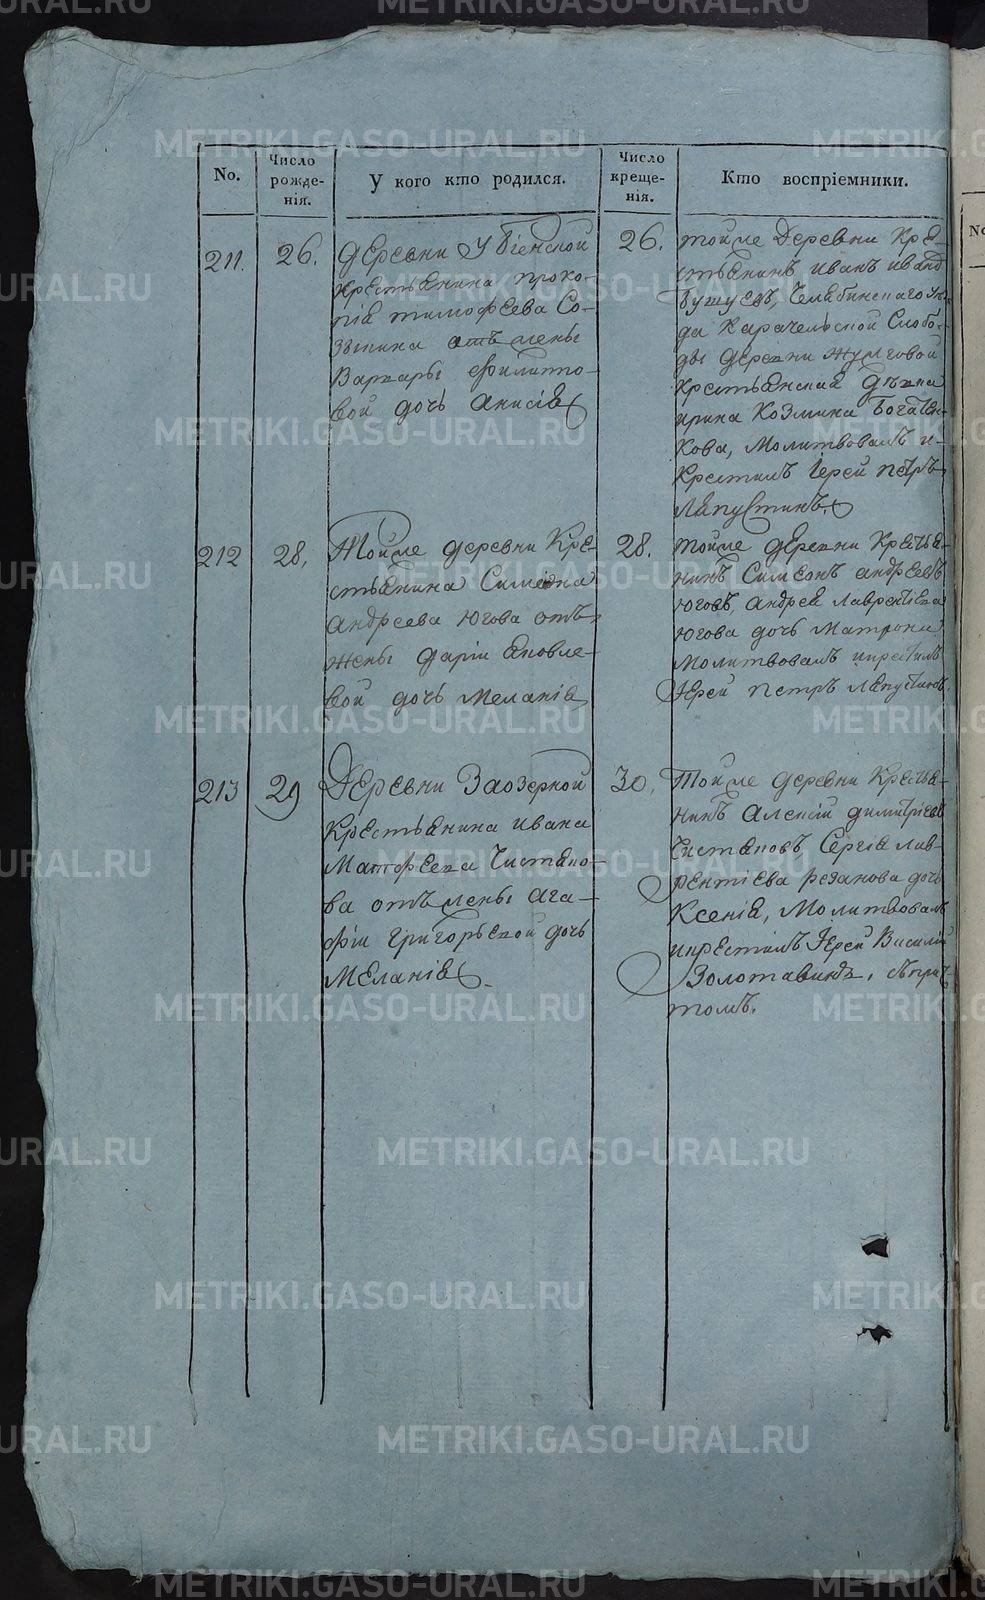 No.
Число рожде-нія.
У кого кто родился.
Число креще-нія.
Кто воспріемники.
211.
26.
деревни Убіенской
крестьянина проко-
пія тимофеева Со-
зыкина отъ жены
Варвары Филиппо-
вой дочь Анисія
26.
тойже деревни кре-
стьянинъ иванъ
Бушуевъ, Челябинскаго
да Карачельской Слобо-
ды деревни
крестьянская дѣвка
ирина Козмина
кова, молитвовалъ и
крестилъ Іерей петръ
Лапустинъ
212
28.
Тойже деревни Кре-
стьянина Симеона
андреева Югова отъ
жены дарьи яковле-
вой дочь Меланія
28.
тойже деревни крестья-
нинъ Симеонъ андреевъ
Юговъ, андрея лаврентіева
Югова дочь Матрона
молитвовалъ икрестилъ
Іерей петръ лапустинъ.
213
29
Деревни Заозерной
крестьянина ивана
Матфеева Чистяко-
ва отъ жены ага-
фіи григорьевой дочь
Меланія.
30.
Тойже деревни Крестья-
нинъ Алексій димитріевъ
Чистяковъ Сергія лав-
рентіева резанова дочь
Ксенія, молитвовалъ
икрестилъ Іерей Василій
Золотавинъ, съ прич-
томъ.
No
METRIKI.GASO-URAL.RU